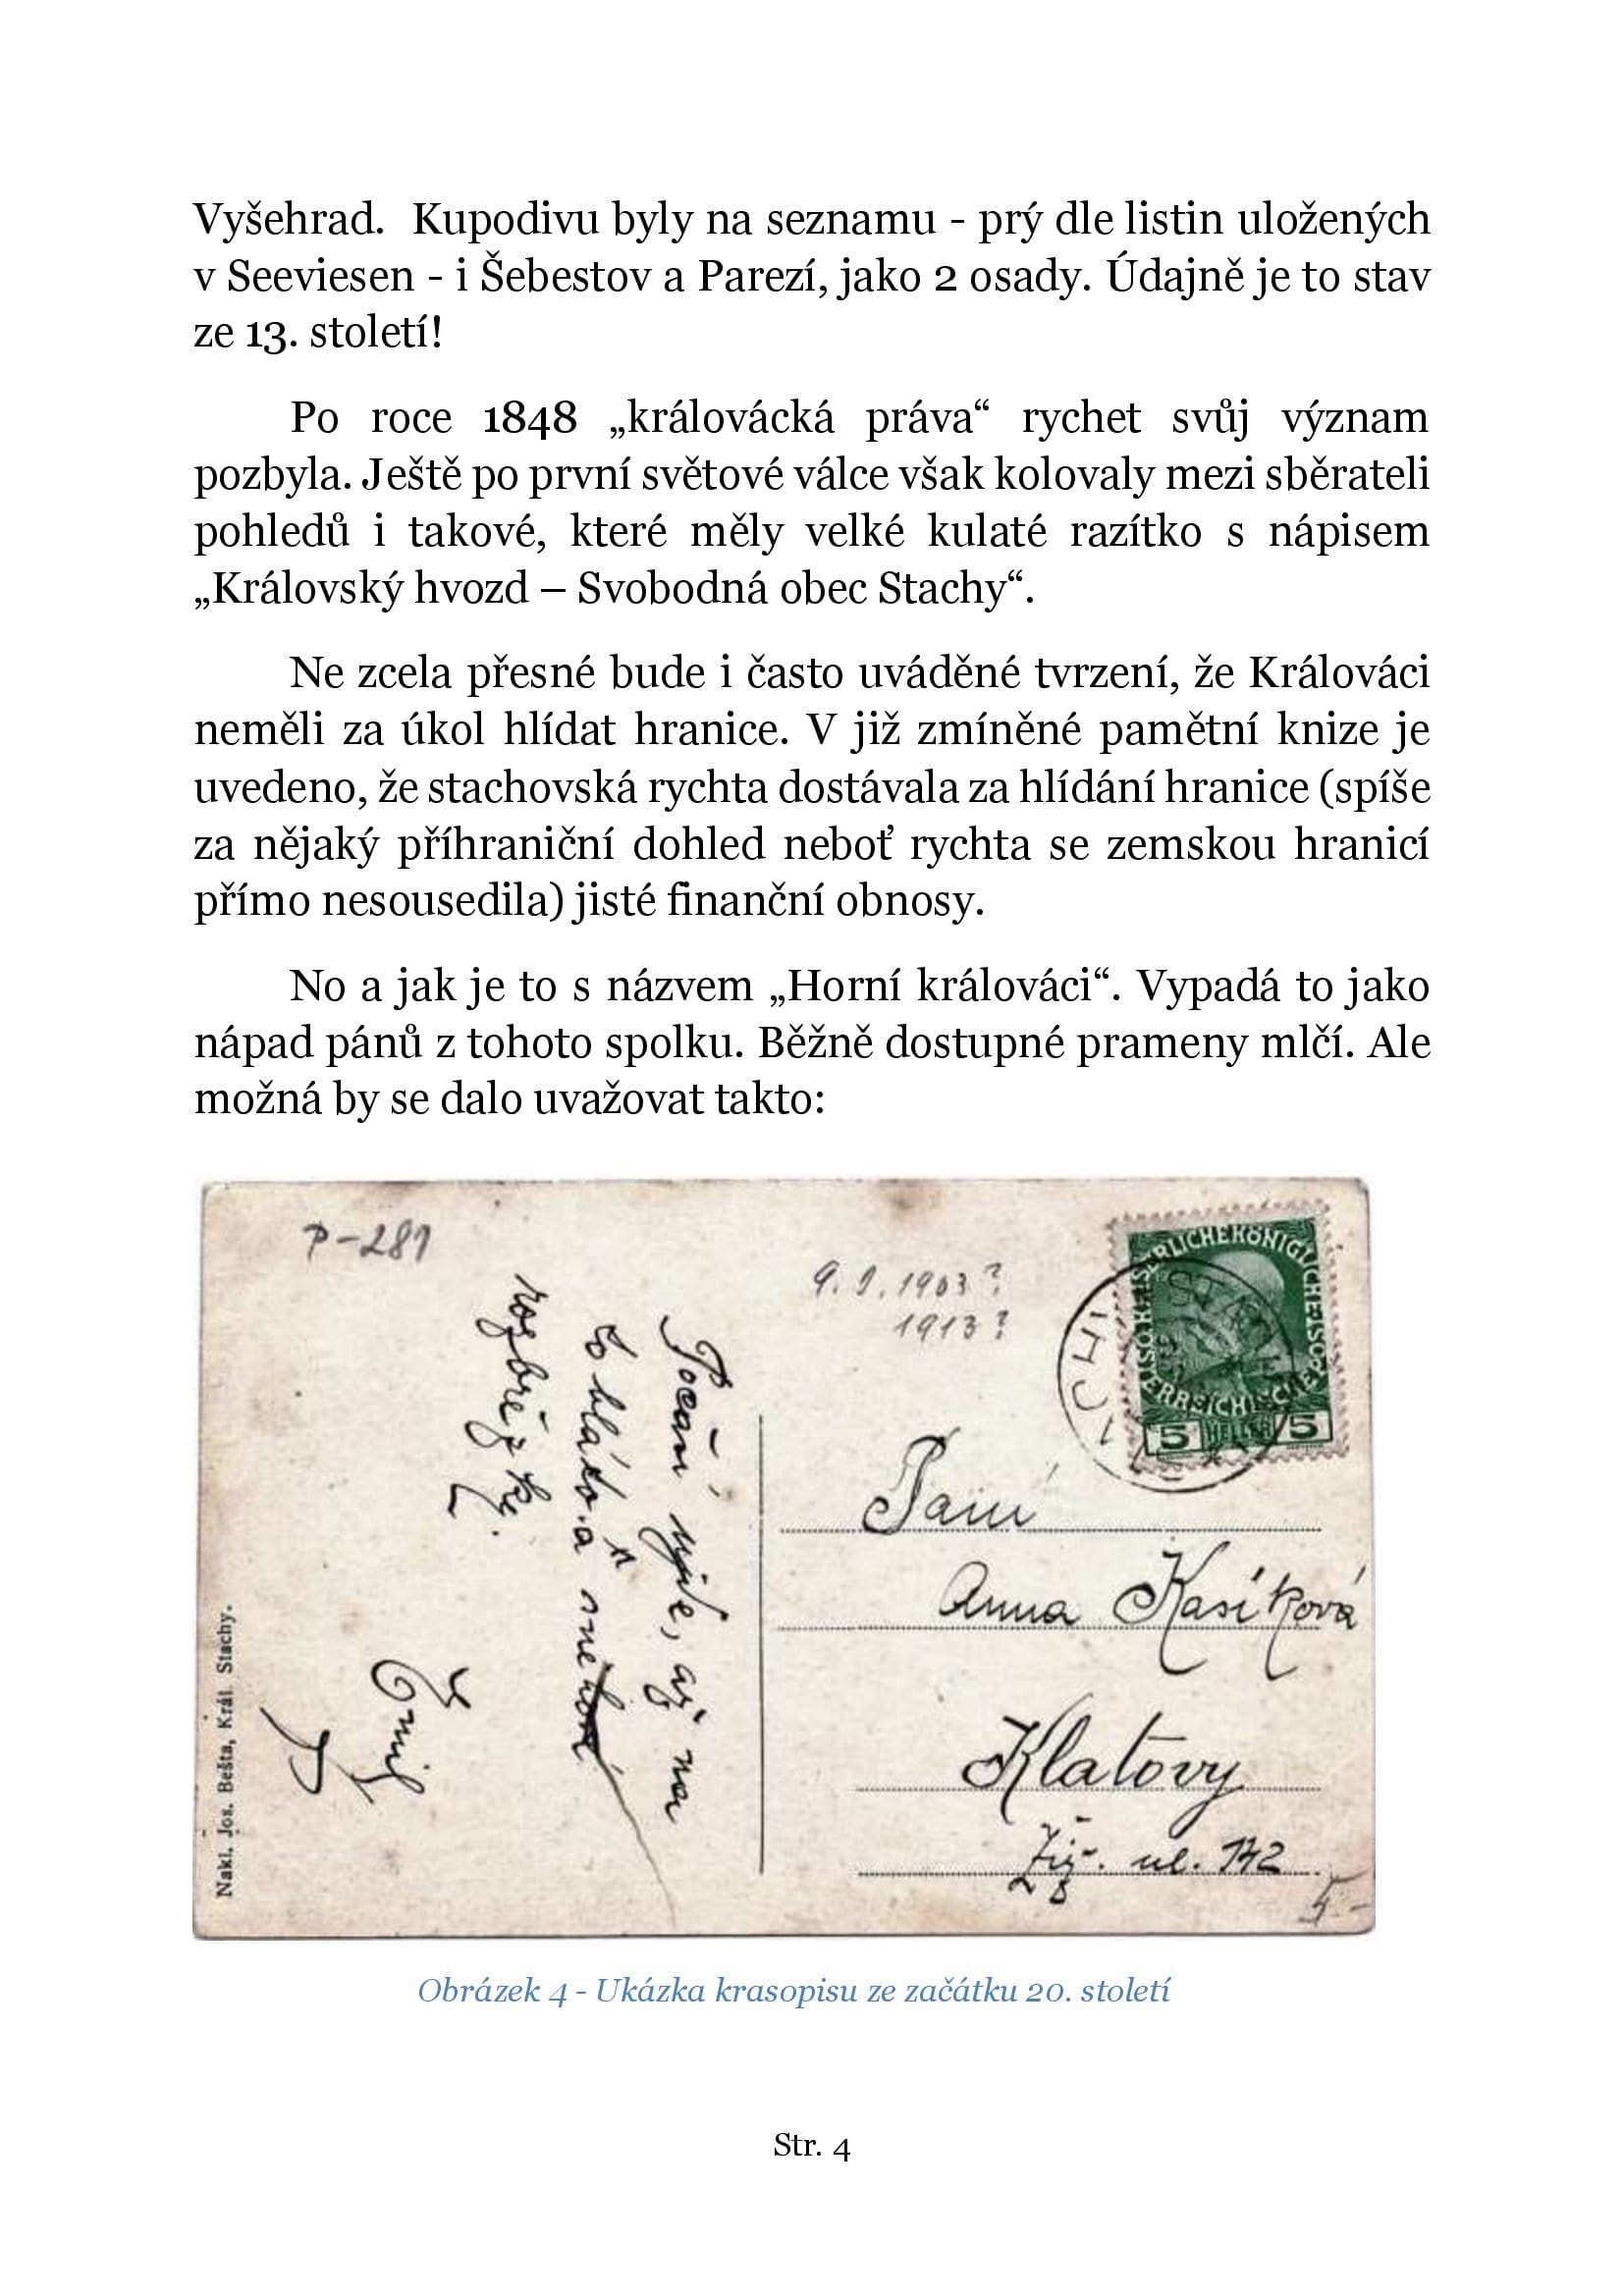 Vyšehrad. Kupodivu byly na seznamu - prý dle listin uložených
v Seeviesen - i Šebestov a Parezí, jako 2 osady. Údajně je to stav
ze 13. století!
Po roce 1848 „královácká práva“ rychet svůj význam
pozbyla. Ještě po první světové válce však kolovaly mezi sběrateli
pohledů i takové, které měly velké kulaté razítko s nápisem
„Královský hvozd – Svobodná obec Stachy“.
Ne zcela přesné bude i často uváděné tvrzení, že Králováci
neměli za úkol hlídat hranice. V již zmíněné pamětní knize je
uvedeno, že stachovská rychta dostávala za hlídání hranice (spíše
za nějaký příhraniční dohled neboť rychta se zemskou hranicí
přímo nesousedila) jisté finanční obnosy.
No a jak je to s názvem „Horní králováci“. Vypadá to jako
nápad pánů z tohoto spolku. Běžně dostupné prameny mlčí. Ale
možná by se dalo uvažovat takto:
P-281
9. 9. 1903?
1913?
5 HELLER 5
Počasí ujde, až na
to bláto a sněhové
rozbředky.
Emil
Paní
Anna Kasíková
Klatovy
Žiž. ul. 142
5-
Nakl. Jos. Bešta, Král. Stachy.
Obrázek 4 - Ukázka krasopisu ze začátku 20. století
Str. 4